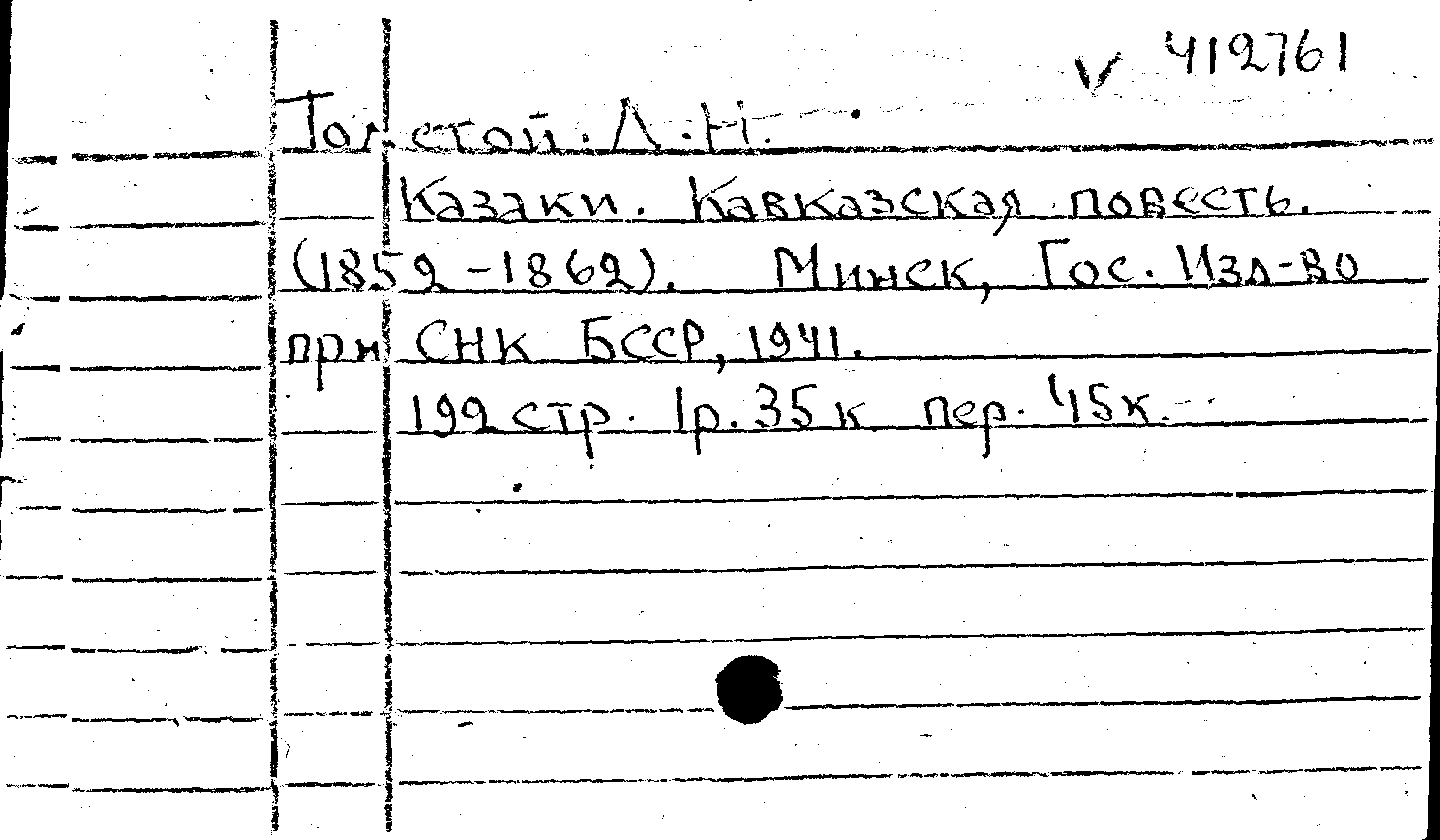 √ 412761
Толстой. Л.Н.
Казаки. Кавказская повесть.
(1852-1862). Минск, Гос. Изд-во
при СНК БССР, 1941.
192 стр. 1р. 35к пер. 45к.